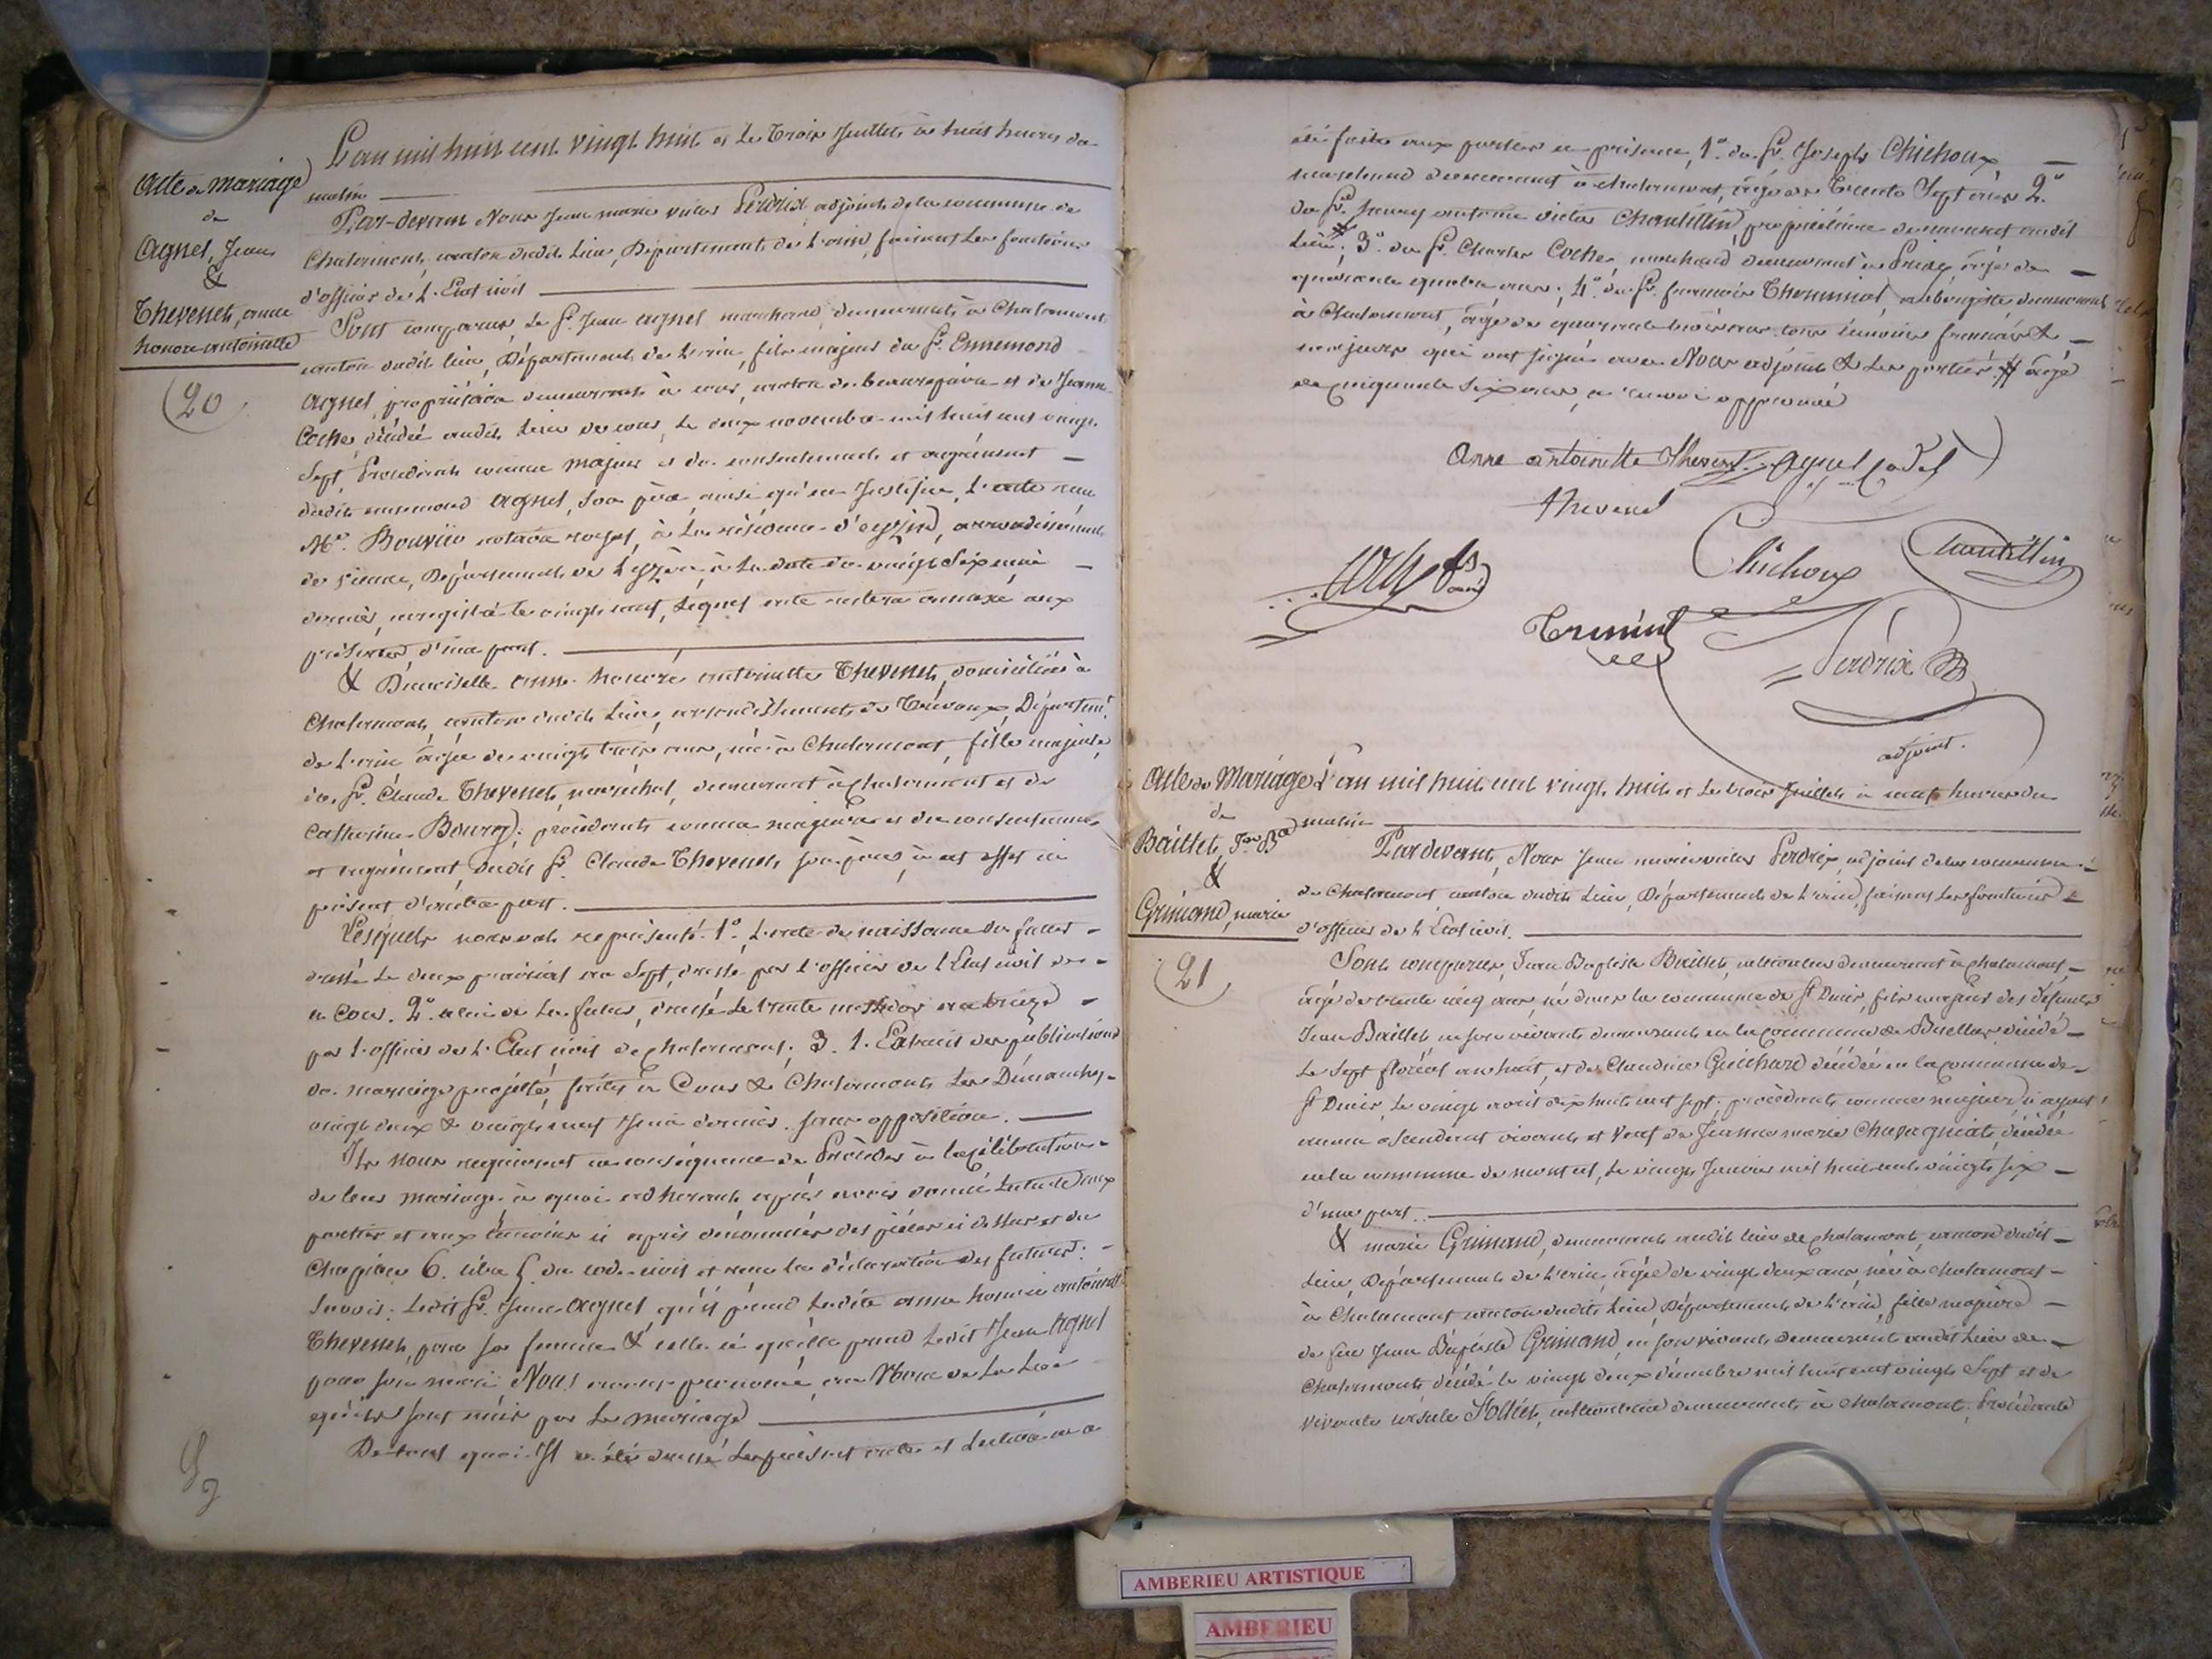 Acte de Mariage
de
Agnel, Jean
&
Thevenet, anne
honore antoinette
20
L'an mil huit cent vingt huit et le trois Juillet à huit heures du
matin
Par-devant Nous Jean marie victor Perdrix adjoint de la commune de
Chalamont, canton dudit lieu, Département de l'ain, faisant les fonctions
d'officier de l'Etat civil
Sont comparus, le Sr. Jean agnel marchand, demeurant à Chalamont
canton dudit lieu, Département de l'ain, fils majeur du Sr. Ennemond
Agnel, propriétaire demeurant à cour, canton de beaurepaire et de Jeanne
Coche, décédée audit lieu de cour, le deux novembre mil huit cent vingt
Sept, Procédant comme majeur et du consentement et agrément
dudit ennemond agnel, son père, ainsi qu'en justifie l'acte reçu
Me. Bouvier notaire royal, à la résidence d'eyzin, arrondissement
de vienne, Département de l'yzère, à la date du vingt six mai
dernier, enregistré le vingt neuf, lequel acte restera annexé aux
présentes, d'une part.
& Demoiselle anne honoré antoinette Thevenet, domiciliée à
Chalamont, canton dudit lieu, arrondissement de Trévoux, Départemt.
de l'ain âgée de vingt trois ans, née à Chalamont, fille majeure
du Sr. Claude Thevenet, maréchal, demeurant à chalamont et de
Catherine Bourg; procédante comme majeure et du consentement
et agrément dudit Sr. Claude Thevenet son père, à cet effet ici
présent d'autre part.
Lesquels nous ont représenté. 1°. l'acte de naissance du futur
dressé le deux prairial an Sept, dressé par l'officier de l'Etat civil de
a Cour. 2°. celui de la future, dressé le trente messidor an treize
par l'officier de l'Etat civil de chalamont; 3. l. Extrait des publications
de mariage projetté, faites à Cour & Chalamont les Dimanches
vingt deux & vingt neuf Juin dernier. sans opposition.
Ils nous requierent en conséquence de Procéder à la célébration
de leur mariage, à quoi adherant, après avoir donné lecture aux
parties et aux témoins ci après dénommés des pièces ci dessus et du
Chapitre 6. titre 5 du code civil et reçu la déclaration des futurs:
Savoir: ledit Sr. Jean agnel, qu'il prend ladite anne honoré antoinette
Thevenet, pour sa femme & celle ci qu'elle prend ledit Jean Agnel
pour son mari, Nous avons prononcé, au Nom de la Loi
qu'ils sont unis par le mariage
De tout quoi Il a été dressé le présent acte et lecture en a
été faite aux parties en présence, 1°. du Sr. Joseph Chichoux
marchand demeurant à chalamont, âgé de Trente Sept ans 2°.
du Sr. henry antoine victor Chantillin, propriétaire demeurant audit
lieu; # 3°. du Sr. Charles Coche, marchand demeurant à âgé de
quarante quatre ans; 4°. du Sr. françois aubergiste, demeurant
à Chalamont, âgé de quarante trois ans tous témoins français &
majeurs qui ont signé avec Nous adjoint & les parties # âgé
de cinquante six ans, a renvoi approuvé
Anne antoinette Thevenet Agnel Cadet
Thevenet
Coche fs ainé
Chichoux
Chantillin
Perdrix
adjoint.
Acte de Mariage
de
Baillet, Jean Bte
&
Grimand, marie
21
L'an mil huit cent vingt huit et le trois Juillet à neuf heures du
matin
Pardevant, Nous Jean marie victor Perdrix, adjoint de la commune
de Chalamont, canton dudit lieu, Département de l'ain, faisant les fonctions
d'officier de l'Etat civil.
Sont comparus, Jean Baptiste Baillet, cultivateur demeurant à chalamont,
âgé de trente cinq ans, né dans la commune de St. Denis, fils majeur des défunts
Jean Baillet, en son vivant demeurant en la commune de Buellas, décédé
Le Sept floréal an huit, et de Claudine Guichard décédée en la commune de
St Denis, Le vingt avril dix huit cent sept; procédant comme majeur n'ayant
aucun ascendant vivant et veuf de Jeanne marie Chavagniat, décédée
en la commune de montcet, le vingt Janvier mil huit cent vingt six
d'une part.
& marie Grimand, demeurant audit lieu de chalamont, canton dudit
lieu, Département de l'ain, âgée de vingt deux ans, née à Chalamont
à Chalamont canton dudit lieu, Département de l'ain, fille majeure
de feu Jean Baptiste Grimand, en son vivant demeurant audit lieu de
Chalamont, décédé le vingt deux décembre mil huit cent vingt Sept et de
vivante ursule Sollet, cultivatrice demeurant à chalamont. Procédante
AMBERIEU ARTISTIQUE
AMBERIEU